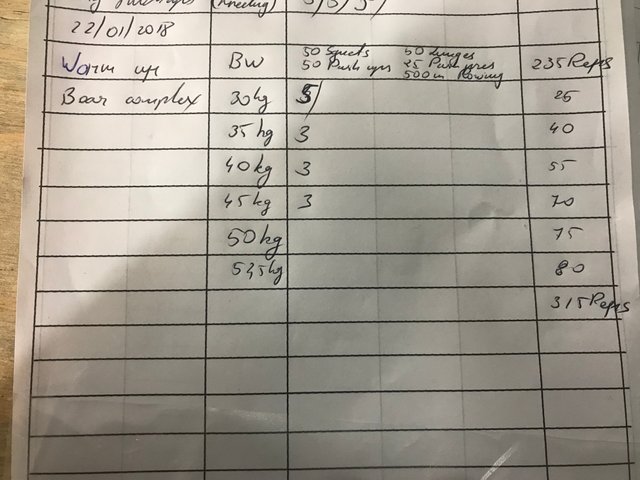 (Kneeling)
22/01/2018
Worm up BW 50 Squets 50 Lunges 235 Reps
50 Push ups 25 Push pres
500m Rowing
Boar complex 30kg 5/ 25
35kg 3 40
40kg 3 55
45kg 3 70
50kg 75
52,5kg 80
315 Reps